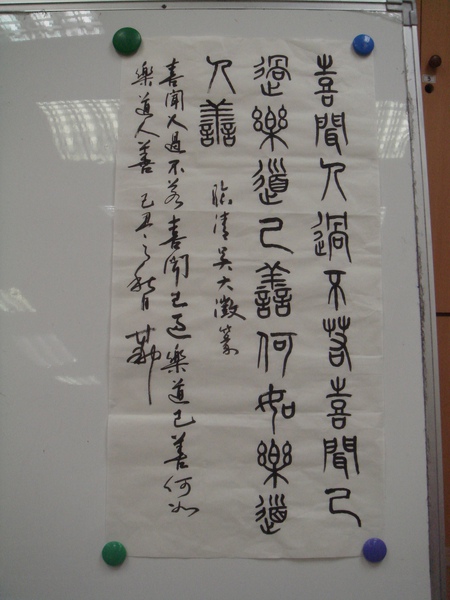 喜聞人過不若喜聞己
過樂道己善何如樂道
人善
臨清吳大澂篆
喜聞人過不若喜聞己過樂道己善何如
樂道人善 己丑之秋月